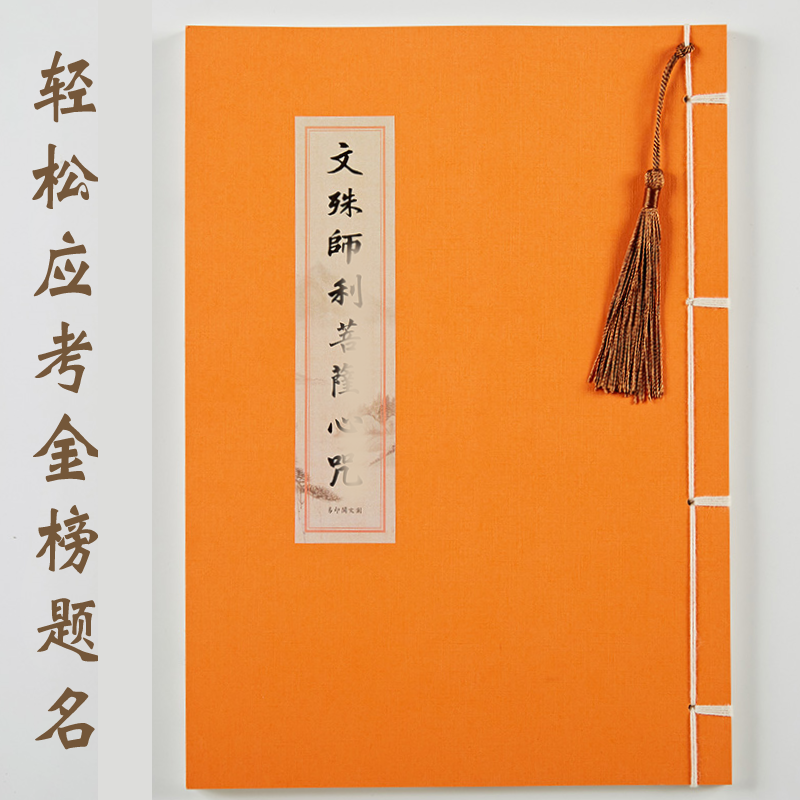 轻松应考金榜题名
文殊師利菩薩心咒